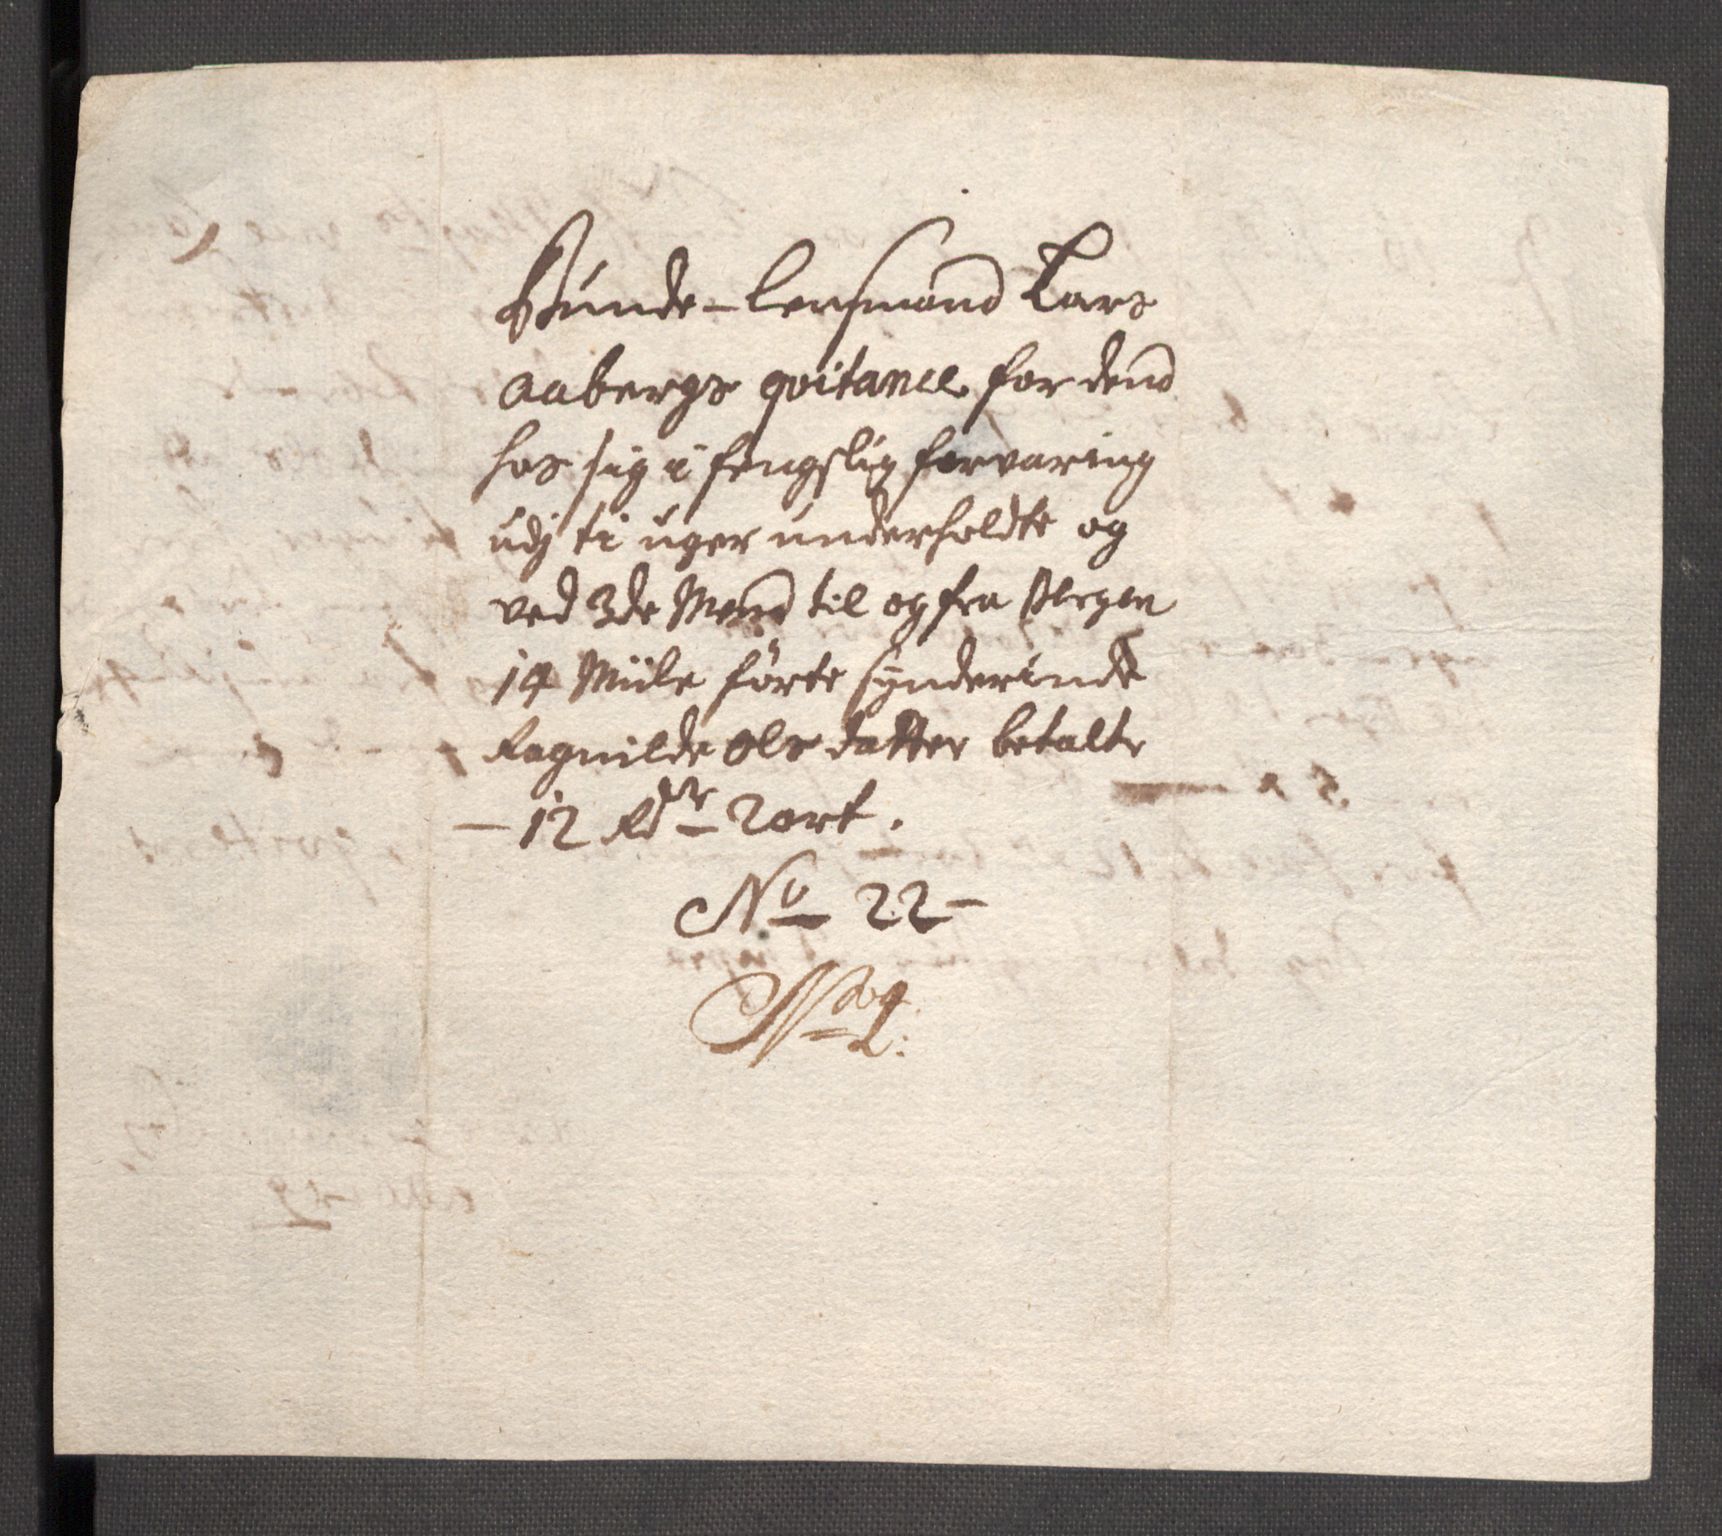 Búnde-lensmand Lars
Aabergs qvitance for dend
hos sig i fengslig forvaring
udj ti uger underholdte og
ved 3de Mend til og fra Bergen
14 Miile förte synderinde
Ragnilde Ols datter betalte
- 12 Rdr 2 ort.
No 22 -